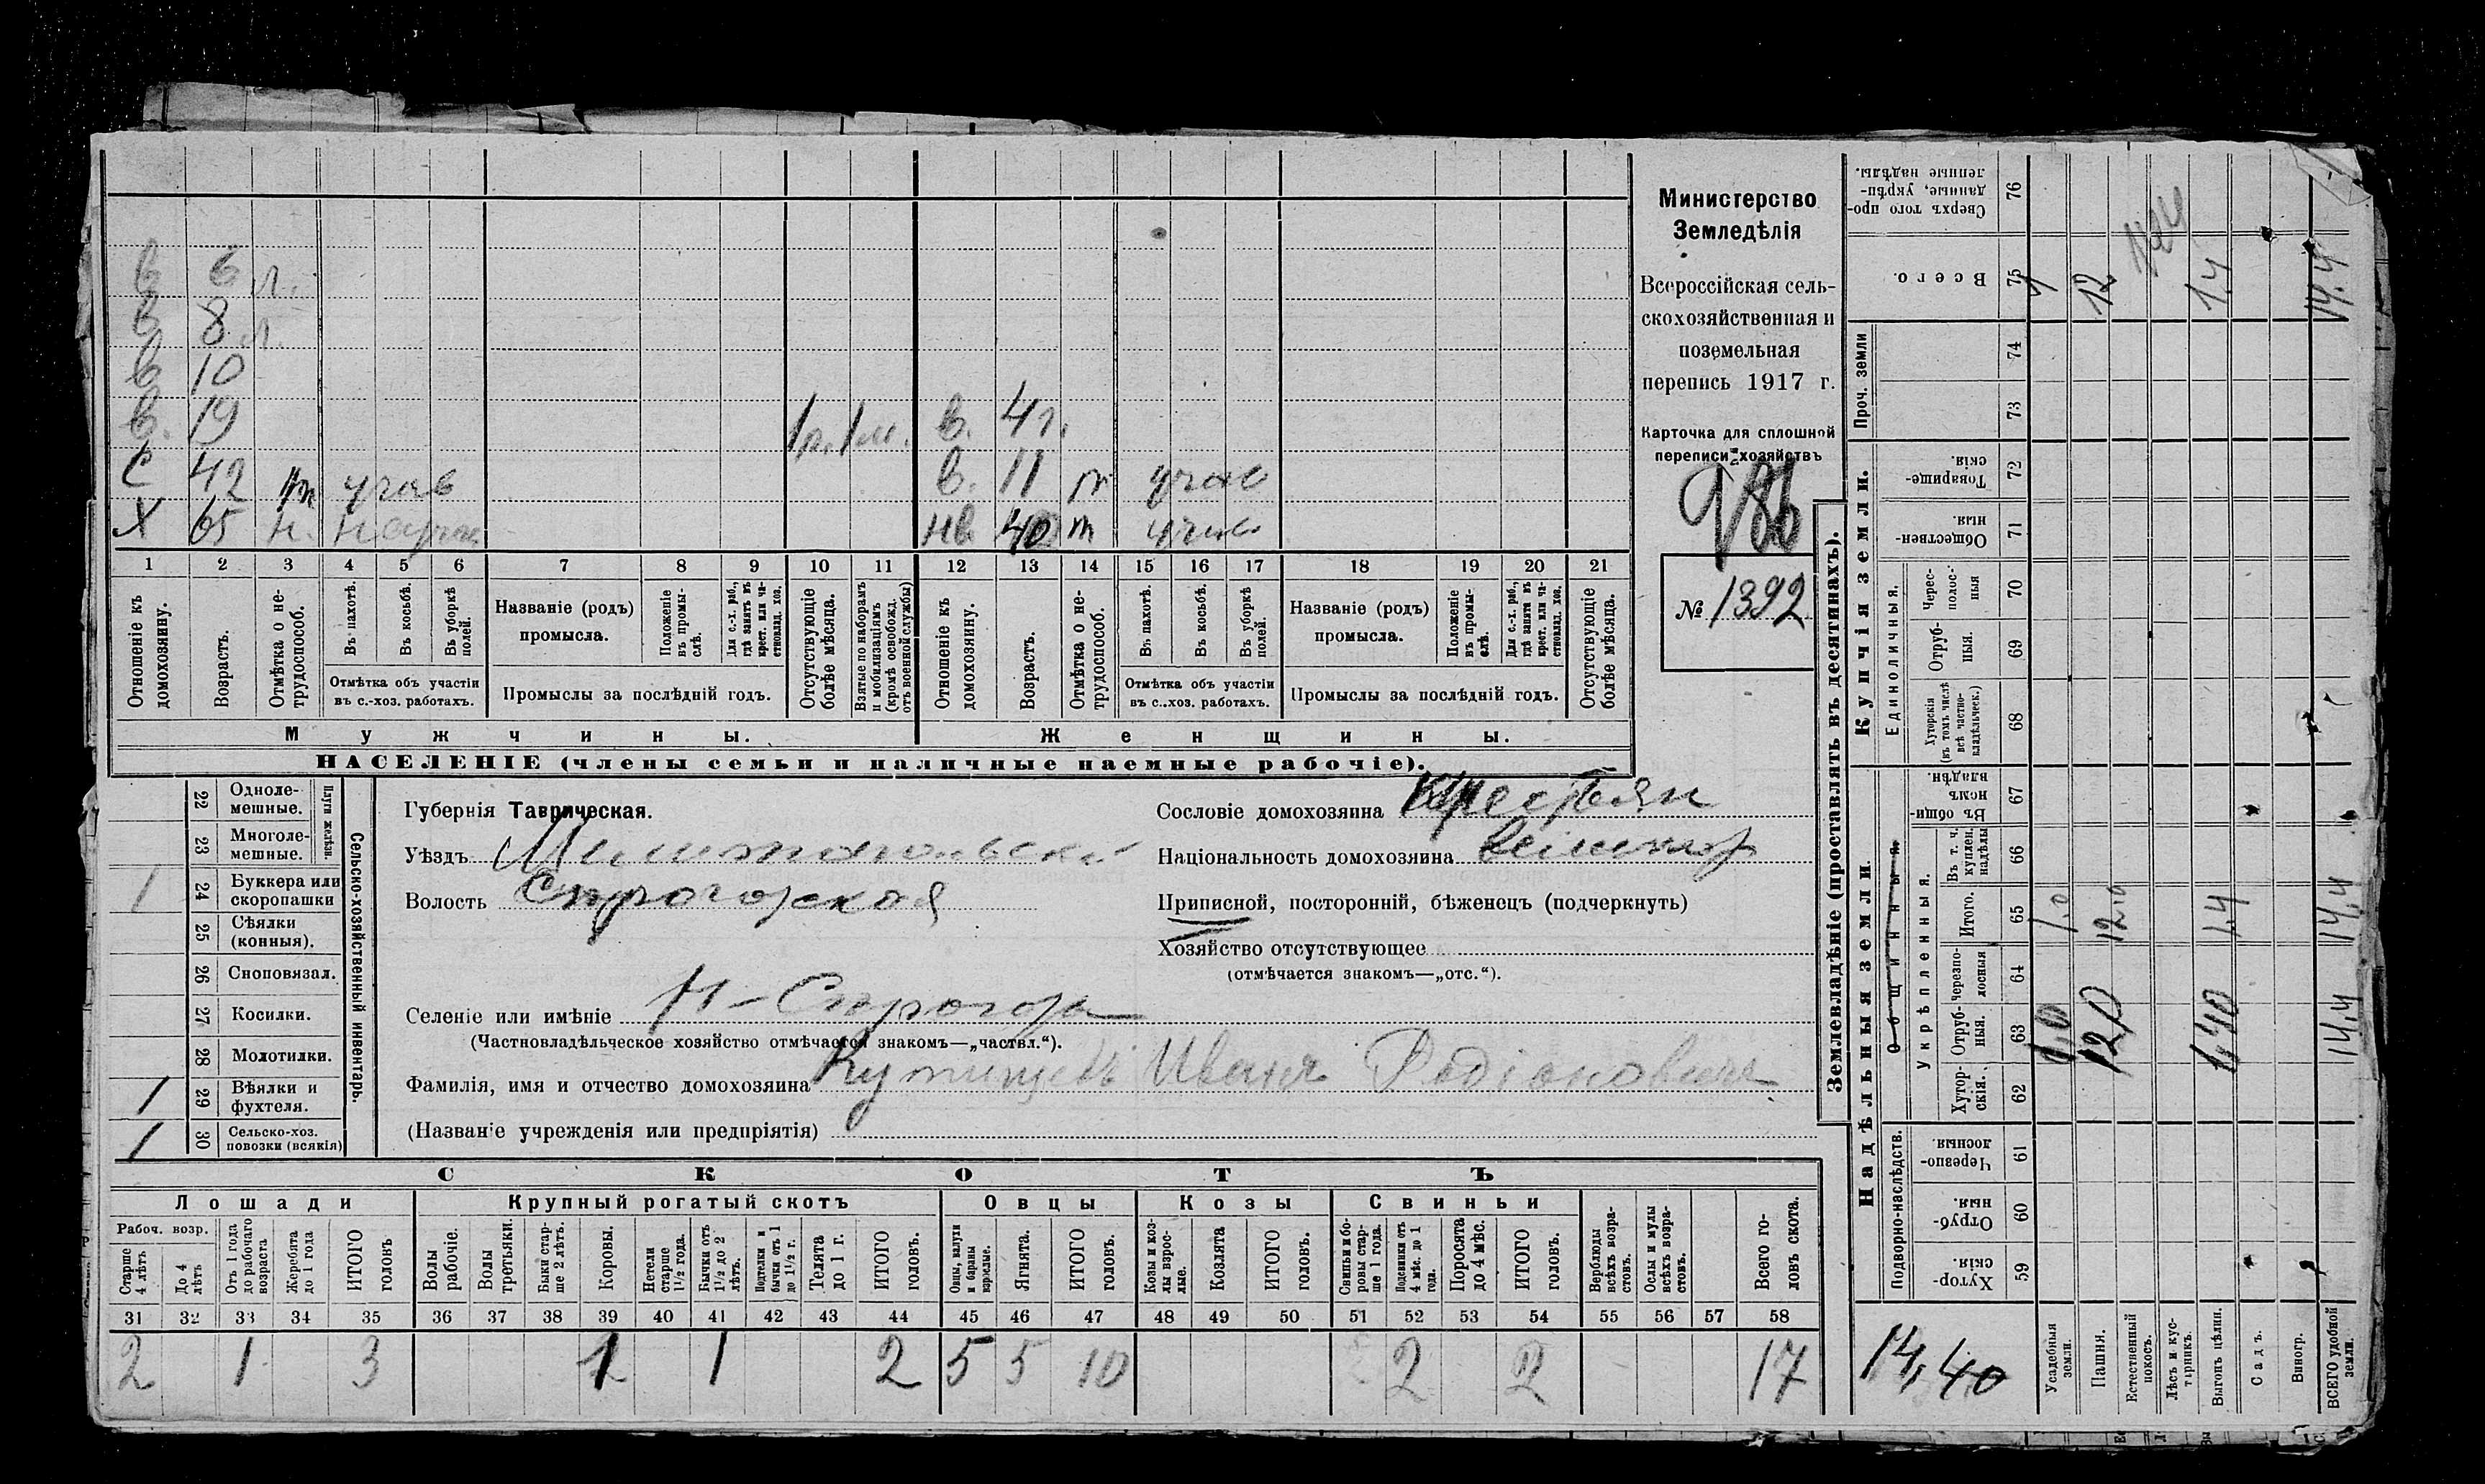 в 6 л.
в 8 л.
в 10
в. 19 1 м. в. 4 г.
с 42 т учас в. 11 т учас
X 65 н. нв 40 т
1 2 3 4 5 6 7 8 9 10 11 12 13 14 15 16 17 18 19 20 21
Отношеніе къ домохозяину.
Возрастъ.
Отмѣтка о нетрудоспособ.
Въ пахотѣ.
Въ косьбѣ.
Въ уборкѣ полей.
Отмѣтка объ участіи въ с.-хоз. работахъ.
Названіе (родъ) промысла.
Положеніе въ промыслѣ.
Для с.-х. раб., гдѣ занятъ въ крест. или частновлад. хоз.
Промыслы за послѣдній годъ.
Отсутствующіе болѣе мѣсяца.
Взятые по наборамъ и мобилизаціямъ (кромѣ освобожд. отъ военной службы)
Отношеніе къ домохозяину.
Возрастъ.
Отмѣтка о нетрудоспособ.
Въ пахотѣ.
Въ косьбѣ.
Въ уборкѣ полей.
Отмѣтка объ участіи въ с..хоз. работахъ.
Названіе (родъ) промысла.
Положеніе въ промыслѣ.
Для с.-х. раб., гдѣ занята въ крест. или частновлад. хоз.
Промыслы за послѣдній годъ.
Отсутствующіе болѣе мѣсяца.
Мужчины. Женщины.
НАСЕЛЕНІЕ (члены семьи и наличные наемные рабочіе).
Министерство
Земледѣлія
Всероссійская сель-
скохозяйственная и
поземельная
перепись 1917 г.
Карточка для сплошной
переписи хозяйствъ
986
№ 1392
22 Одноле-мешные.
23 Многоле-мешные.
Плуги желѣзн.
1 24 Буккера или скоропашки
25 Сѣялки (конныя).
26 Сноповязал.
27 Косилки.
28 Молотилки.
1 29 Вѣялки и фухтеля.
1 30 Сельско-хоз. повозки (всякія)
Сельско-хозяйственный инвентарь.
Губернія Таврическая.
Уѣздъ Мелитопольскій
Волость Строгорская
Селеніе или имѣніе Н-Строгозы
(Частновладѣльческое хозяйство отмѣчается знакомъ—„частвл.“).
Фамилія, имя и отчество домохозяина Иванъ Родіоновичъ
(Названіе учрежденія или предпріятія)
Сословіе домохозяина Крестьян
Національность домохозяина великор
Приписной, посторонній, бѣженецъ (подчеркнуть)
Хозяйство отсутствующее
(отмѣчается знакомъ—„отс.“).
СКОТЪ
Лошади Крупный рогатый скотъ Овцы Козы Свиньи
Рабоч. возр.
Старше 4 лѣтъ
До 4 лѣтъ
Отъ 1 года до рабочаго возраста
Жеребята до 1 года
ИТОГО головъ
Волы рабочіе.
Волы третьяки.
Быки старше 2 лѣтъ.
Коровы.
Нетели старше 1½ года.
Бычки отъ 1½ до 2 лѣтъ.
Подтелки и бычки отъ 1 до 1½ г.
Телята до 1 г.
ИТОГО головъ.
Овцы, валухи и бараны взрослые.
Ягнята.
ИТОГО головъ.
Козы и козлы взрослые.
Козлята
ИТОГО головъ.
Свиньи и боровы старше 1 года.
Подсвинки отъ 4 мѣс. до 1 года.
Поросята до 4 мѣс.
ИТОГО головъ.
Верблюды всѣхъ возрастовъ.
Ослы и мулы всѣхъ возрастовъ.
Всего головъ скота.
31 32 33 34 35 36 37 38 39 40 41 42 43 44 45 46 47 48 49 50 51 52 53 54 55 56 57 58
2 1 3 1 1 2 5 5 10 2 2 17
Землевладѣніе (проставлять въ десятинахъ).
Надѣльныя земли.
Купчія земли.
Проч. земли
Общинныя.
Укрѣпленныя.
Подворно-наслѣдств.
Единоличныя.
Сверхъ того проданные, укрѣпленные надѣлы. 76
Всего. 75
74
73
Товарищескія. 72
Общественныя. 71
Чересполосныя 70
Отрубныя. 69
Хуторскія (въ томъ числѣ всѣ частновладѣльческ.) 68
Въ общинномъ владѣн. 67
Въ т. ч. куплен. надѣлы 66
Итого. 65
Черезполосныя 64
Отрубныя. 63
Хуторскія. 62
Черезполосныя 61
Отрубныя. 60
Хуторскія. 59
12 1.4 14.4
1.0 12.0 1.4 14.4
1,0 12,0 1,40 14,4
14,40
Усадебныя земли.
Пашня.
Естественный покосъ.
Лѣсъ и кустарникъ.
Выгонъ цѣлин.
Садъ.
Виногр.
ВСЕГО удобной земли.